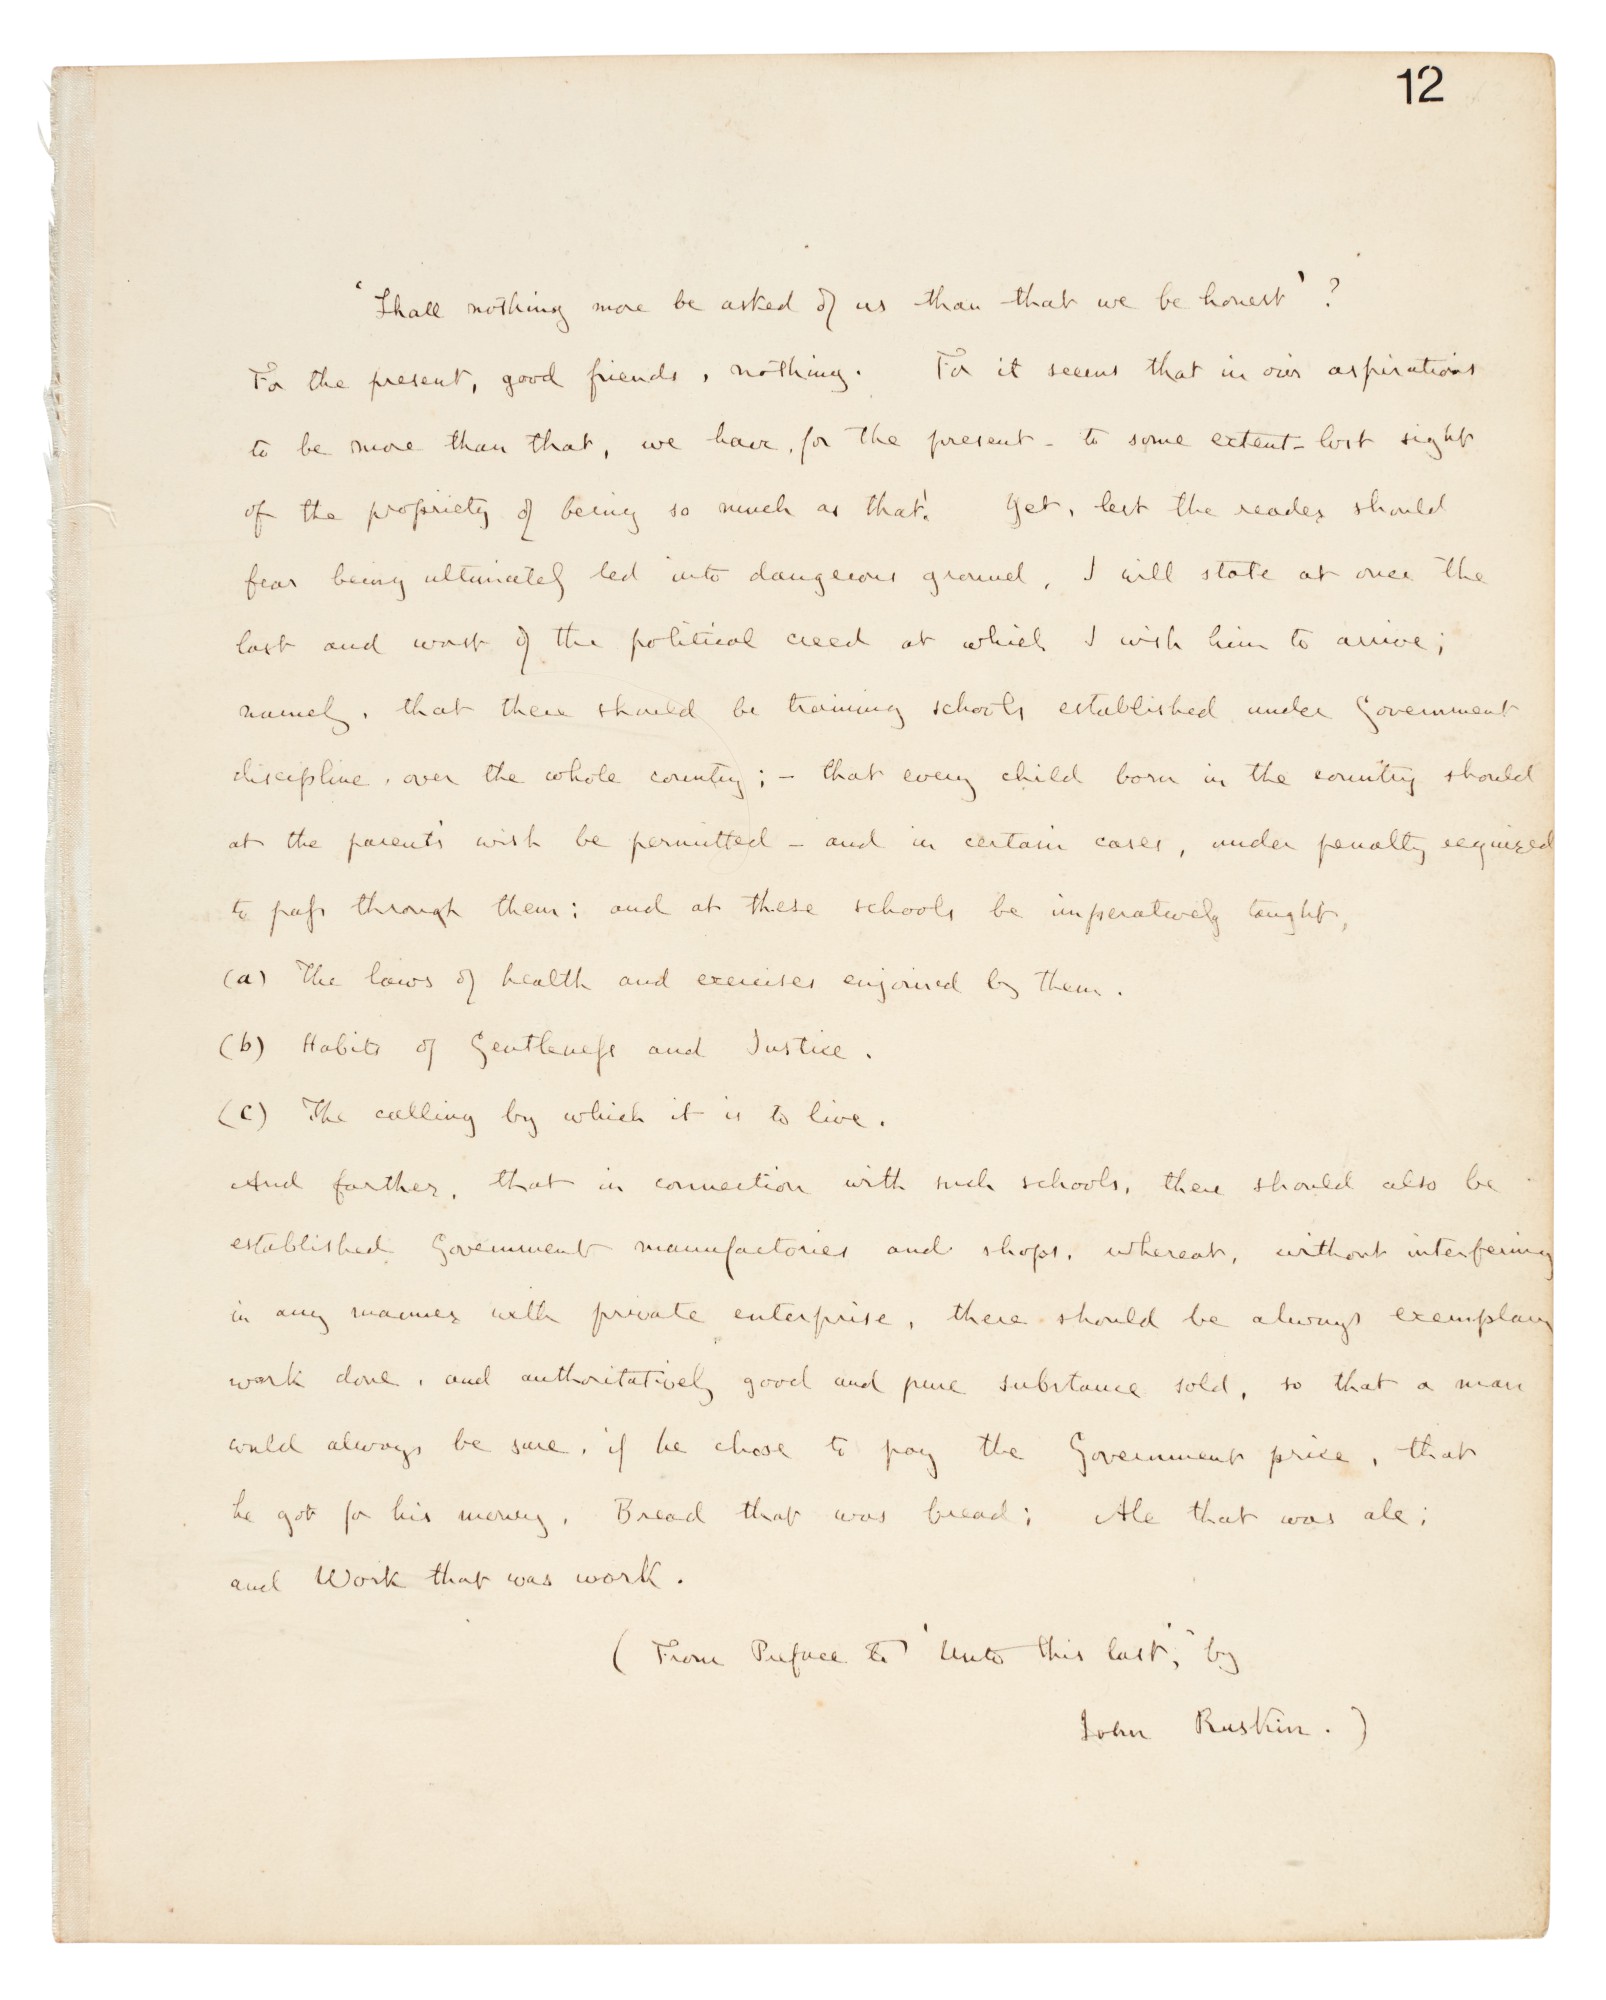 12
'Shall nothing more be asked of us than that we be honest'?
For the present, good friends, nothing. For it seems that in our aspirations
to be more than that, we have, for the present - to some extent - lost sight
of the propriety of being so much as that! Yet, lest the reader should
fear being ultimately led into dangerous ground, I will state at once the
last and worst of the political creed at which I wish him to arrive;
namely, that there should be training schools established under Government
discipline, over the whole country; - that every child born in the country should
at the parent's wish be permitted - and in certain cases, under penalty required
to pass through them: and at these schools be imperatively taught,
(a) The laws of health and exercises enjoined by them.
(b) Habits of Gentleness and Justice.
(c) The calling by which it is to live.
And farther, that in connection with such schools, there should also be
established Government manufactories and shops, whereat, without interfering
in any manner with private enterprise, there should be always exemplary
work done, and authoritatively good and pure substance sold, so that a man
could always be sure, if he chose to pay the Government price, that
he got for his money, Bread that was bread; Ale that was ale;
and Work that was work.
(From Preface to 'Unto this last', by
John Ruskin.)